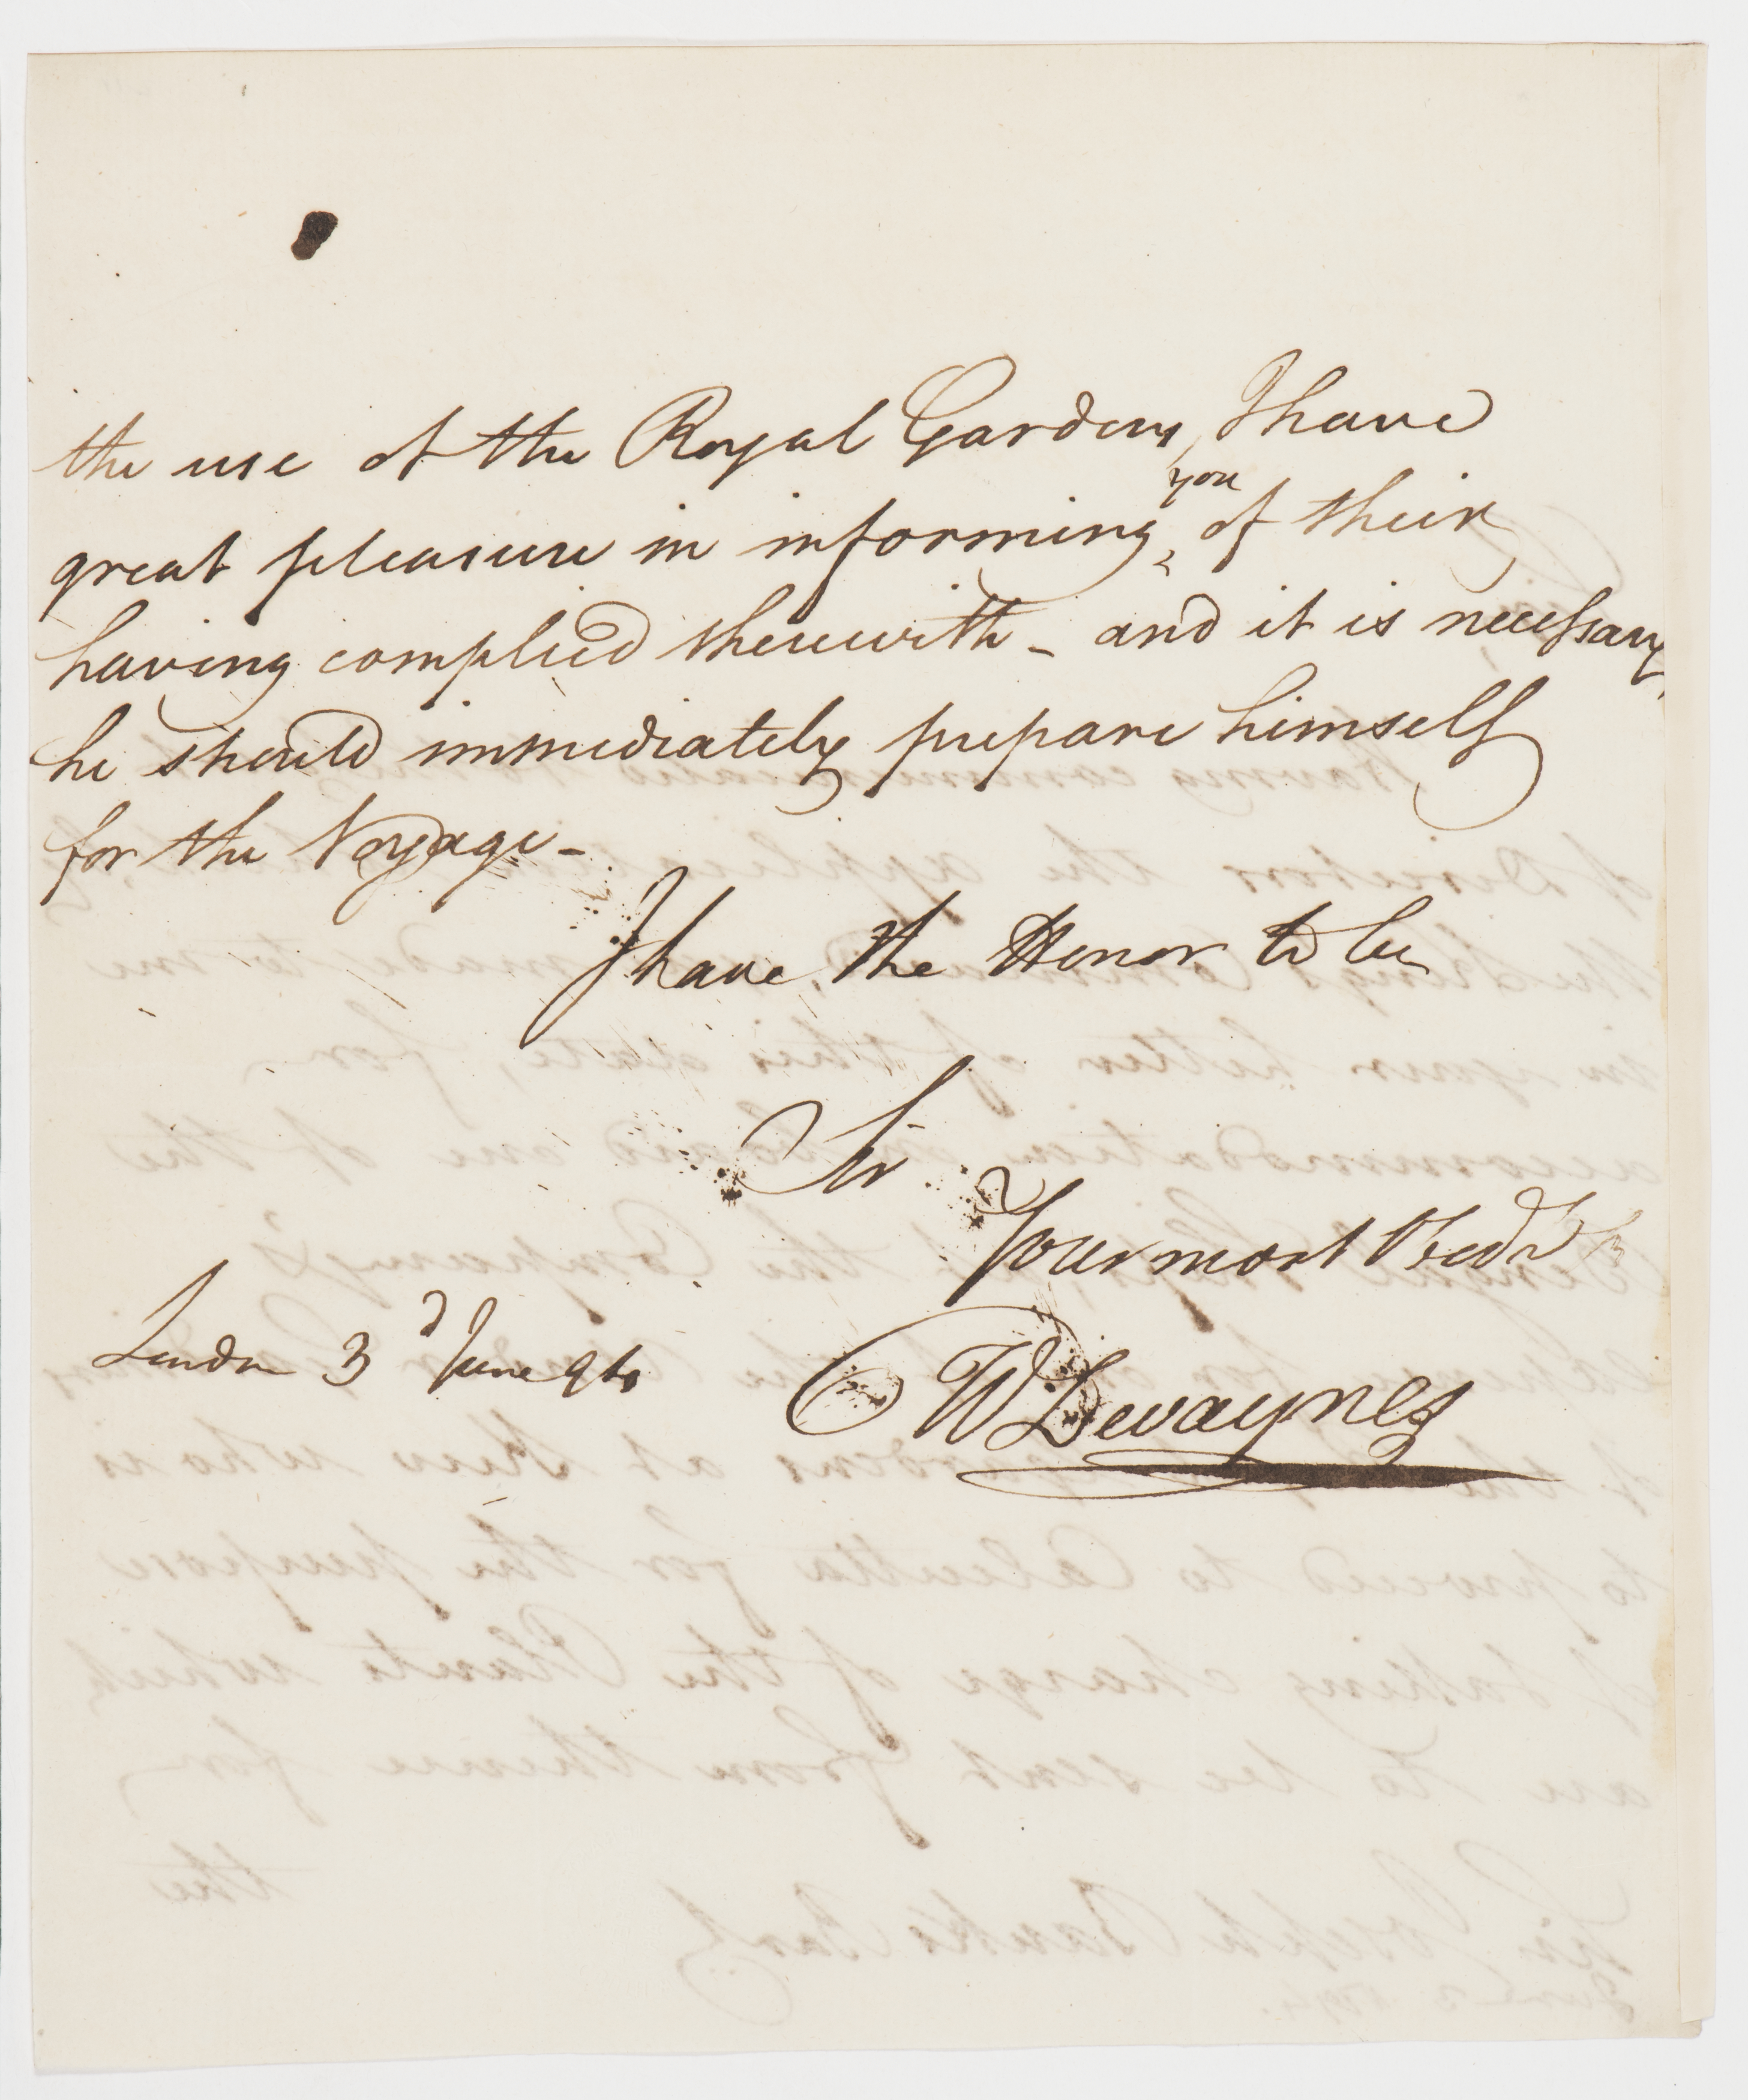 the use of the Royal Gardens, I have
great pleasure in informing you of their
having complied therewith - and it is necessary
he should immediately prepare himself
for the Voyage -
I have the Honor to be
Sir
Your most Obed.
London 3d June 94
W Devaynes